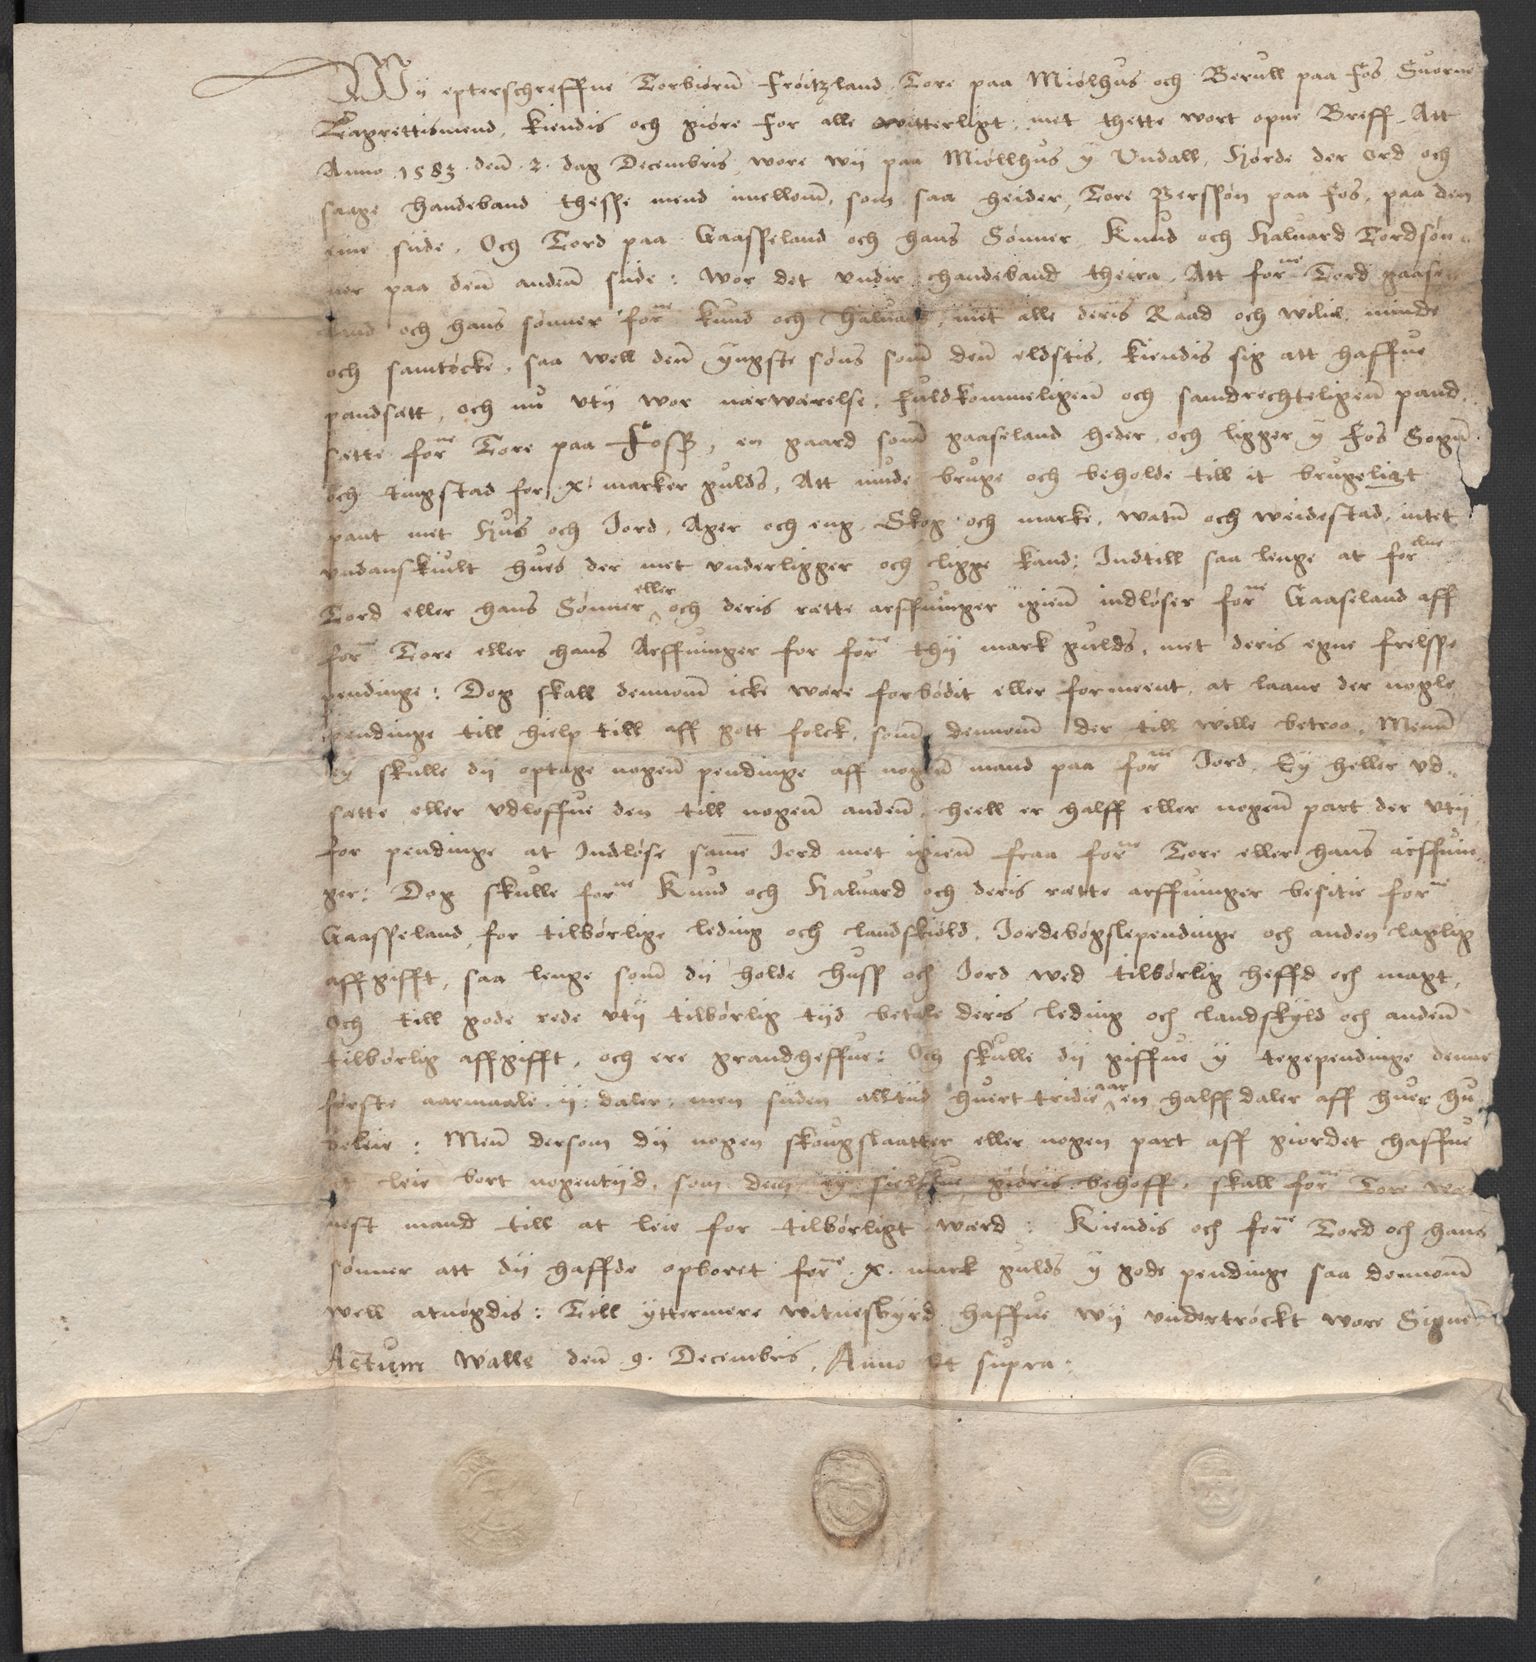 Wij epterschreffne Torbiørnn Frøitzland Tore paa Miølhus och Berull paa Fos Suorne
Lagrettismend, kiendis och giøre for alle witterligt, met thette wort opne Breff, Att
Anno 1583 denn 2. dag Decembris wore wij paa Miøllhus ÿ Undall, Hørde der ord och
saage handeband thesse mend imellom, som saa heider, Tore Perssøn paa Fos, paa den
eine side, Och Tord paa Gaasseland och hans Sønner Knud och Haluard Tordsøn
ner paa denn andenn side: wor det vndir handeband theira, Att forne Tord gaase
land och hans sønner forne Knud och Haluard, met alle deris Raad och wilie, minde
och samtøcke, saa well denn ÿngste søns som denn eldstis, kiendis sig att haffue
pandsatt, och nu vtij wor nærwærelse, fuldkommeligenn och samdrechteligenn pand
sette forne Tore paa Foss, en gaard som gaaseland heder, och ligger ÿ Fos Sogn
och tingstad for x marker gulds, Att niude bruge och beholde till it brugeligt
pant met Hus och Jord, Ager och eng, Skog och marke, watnn och weidestad, intet
vndanskiult hues der met vnderligger och ligge kand: Indtill saa lenge at forne
Tord eller hans Sønner eller och deris rætte arffuinger igienn indløser forne Gaaseland aff
forne Tore eller hans Arffuinger for forne thij mark gulds, met deris egne frelsse
pendinge: Dog skall dennom icke wære forbødit eller forment, at laane der nogle
pendinge till hielp till aff gott folck, som dennom der till wille betroo, Menn
eÿ skulle dij optage nogenn pendinge aff nogenn mand paa forne Jord, Eÿ heller vd
sætte eller vdloffue den till nogenn andenn heell er halff eller nogenn part der vtij
for pendinge at Indløse samme Jord met igienn fraa forne Tore eller hans arffuin
ger: Dog skulle forne Knud och Haluard och deris rætte arffuinger besitie forne
Gaasseland for tilbørlige leding och landskiøld, Jordebøgslependinge och anden laglig
affgifft, saa lenge som dij holde huss och Jord wed tilbørlig heffd och magt,
Och till gode rede vtij tilbørlig tijd betale deris leding och landskÿld och andenn
tilbørlig affgifft, och ere grandheffue: Och skulle dij giffue ÿ tegependinge denne
første aarmaale ij daler, men siden alltiid huert tridie aar en halff daler aff huer hu
deleie: Menn dersom dij nogen skougslaatter eller nogen part aff giordet haffue
at leie bort nogentijd, som dem eÿ sielffue giøris behoff, skall forne Tore wære
nest mand till at leie for tilbørligt wærd: Kiendis och forne Tord och hans
sønner att dij haffde opboret forne x mark gulds ÿ gode pendinge saa dennom
well atnøgdis: Till ÿttermere witnesbÿrd haffue wij vndertrøckt wore Signe
Actum Walle denn 9. Decembris, Anno vt supra: